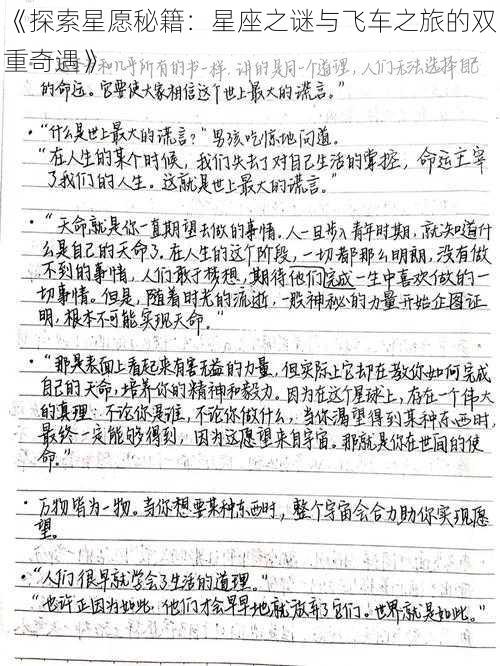 《探索星愿秘籍：星座之谜与飞车之旅的双
重奇遇》
和几乎所有的书一样，讲的是同一个道理，人们无法选择自己
的命运。它要使大家相信这个世上最大的谎言。”
·“什么是世上最大的谎言？”男孩吃惊地问道。
“在人生的某个时候，我们失去了对自己生活的掌控，命运主宰
了我们的人生。这就是世上最大的谎言。”
·“天命就是你一直期望去做的事情。人一旦步入青年时期，就知道什
么是自己的天命了。在人生的这个阶段，一切都那么明朗，没有做
不到的事情，人们敢于梦想，期待他们完成一生中喜欢做的一
切事情。但是，随着时光的流逝，一股神秘的力量开始企图证
明，根本不可能实现天命。”
·“那是表面上看起来有害无益的力量，但实际上它却在教你如何完成
自己的天命，培养你的精神和毅力。因为在这个星球上，存在一个伟大
的真理：不论你是谁，不论你做什么，当你渴望得到某种东西时，
最终一定能够得到，因为这愿望来自宇宙。那就是你在世间的使
命。”
·万物皆为一物。当你想要某种东西时，整个宇宙会合力助你实现愿
望。
·“人们很早就学会了生活的道理。”
“也许正因为如此，他们才会早早地就放弃了它们。世界就是如此。”